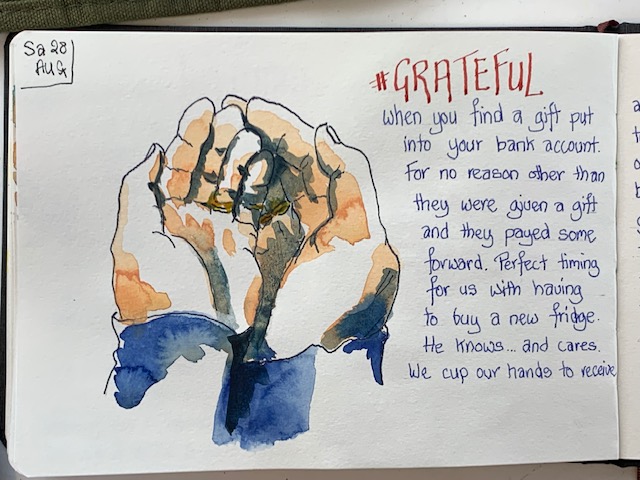 Sa 28
AUG
#GRATEFUL
when you find a gift put
into your bank account.
For no reason other than
they were given a gift
and they payed some
forward. Perfect timing
for us with having
to buy a new fridge.
He knows... and cares.
We cup our hands to receive